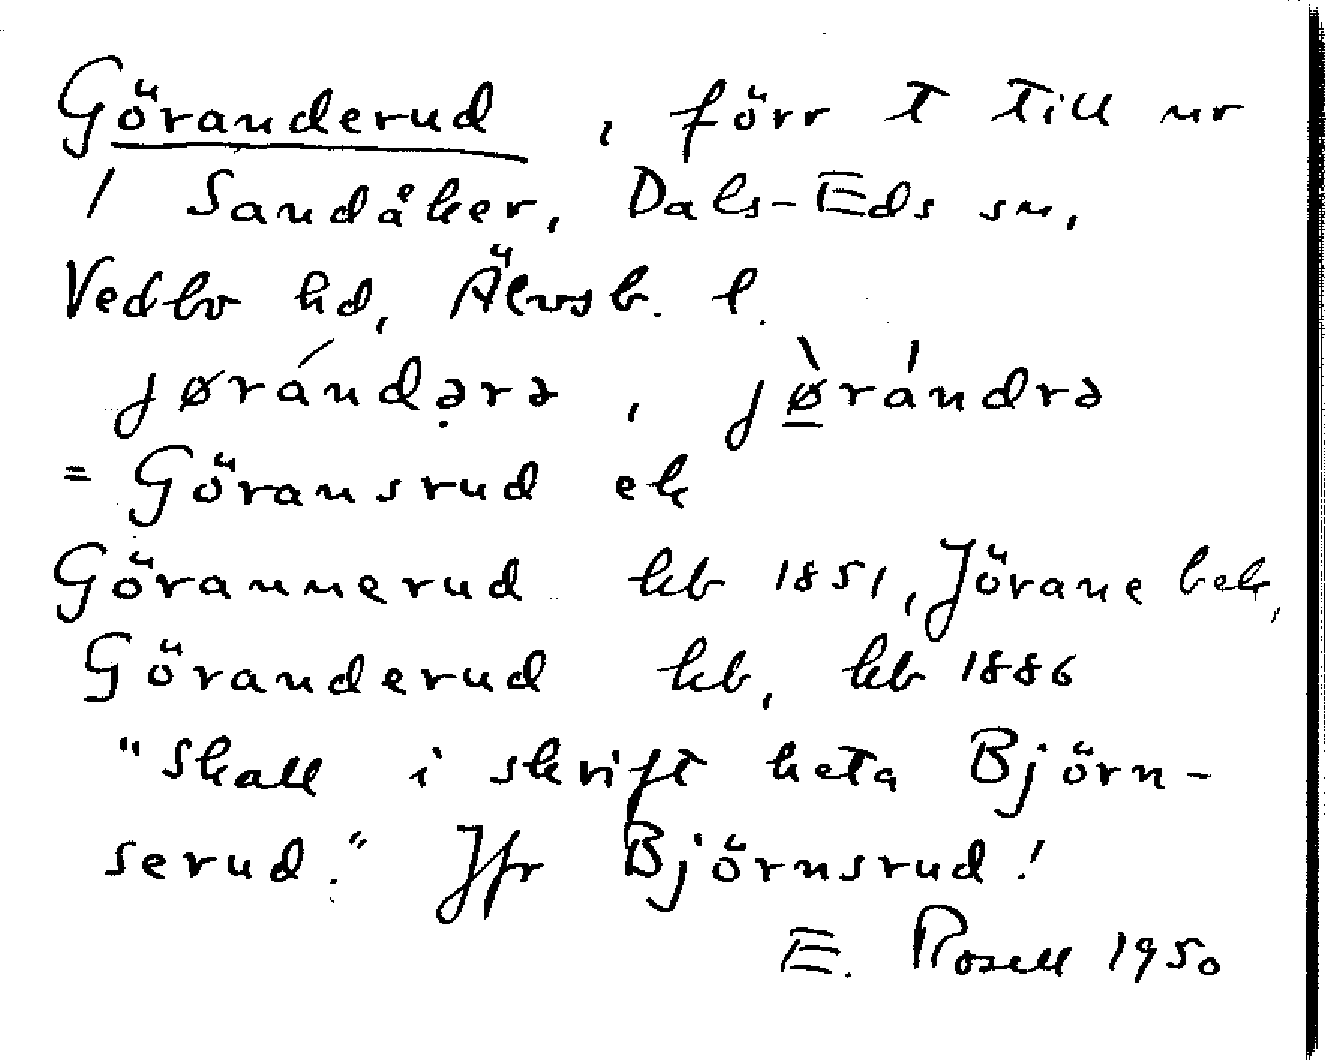 Göranderud, förr T Till nr
1 Sandåker, Dals-Eds sn,
Vedbo hd, Älvsb. l.
jørándərə, jø̀rándrə
= Göransrud ek
Görannerud kb 1851, Jörane bek,
Göranderud kb, kb 1886
"Skall i skrift heta Björn-
serud." Jfr Björnsrud!
E. Rosell 1950